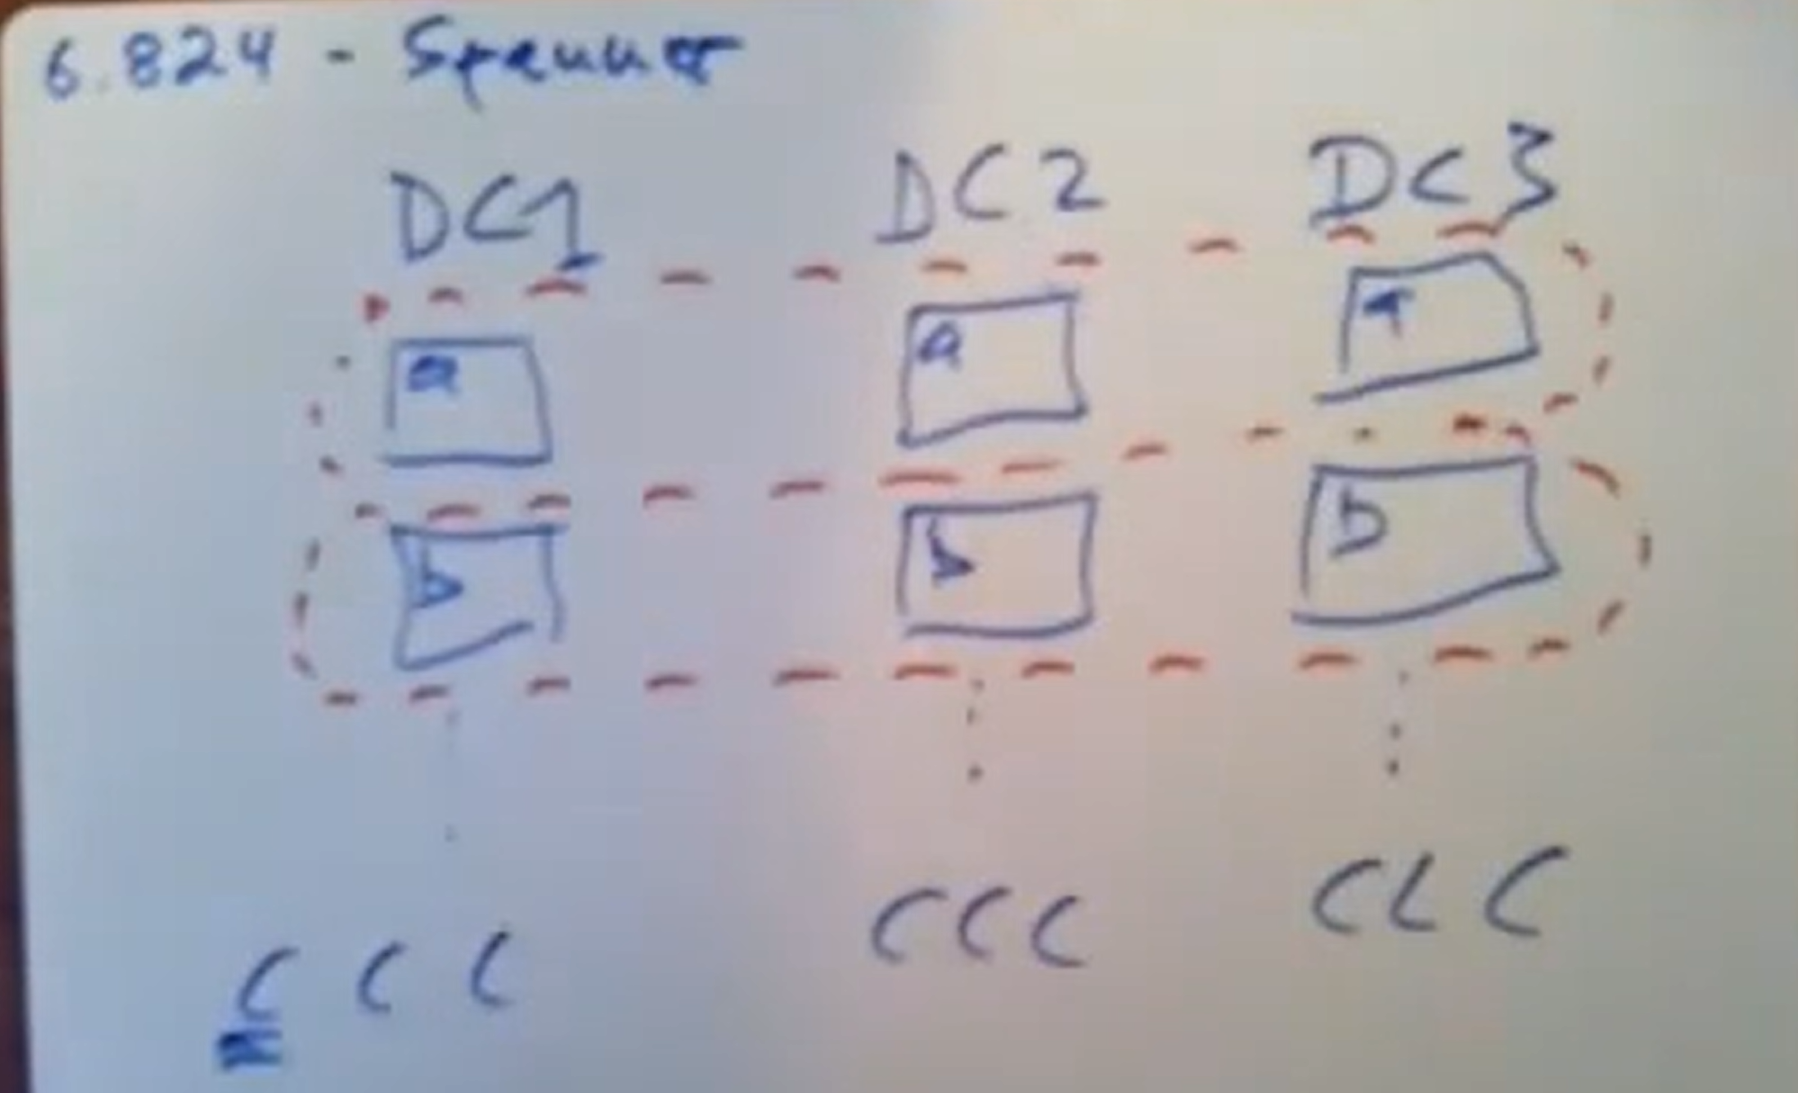 6.824 - Spanner
DC1 DC2 DC3
a a a
b b b
C C C C C C C C C